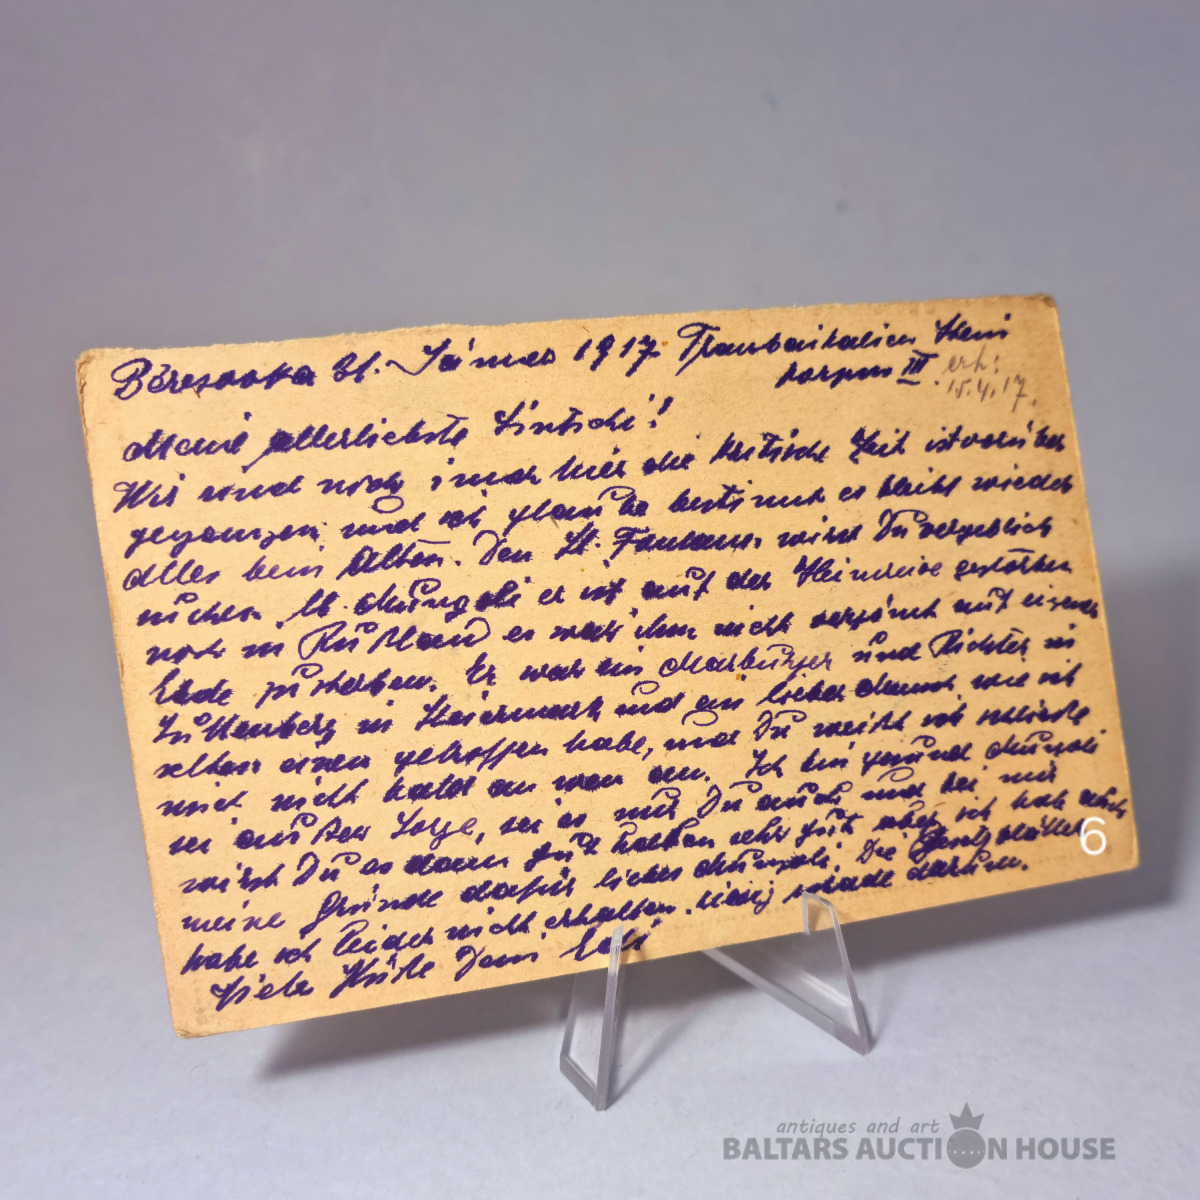 Béresovka 31. Jänner 1917 Transbaikalien Stein
korpus III. erh:
15.4.17.
Meine allerliebste
Wir sind noch immer hier die kritische Zeit ist vorüber
gegangen und ich glaube bestimmt es bleibt wieder
alles beim Alten. Den wirst Du vergeblich
er ist auf der Heimreise gestorben
noch in Rußland es war ihm nicht vergönnt auf eigener
Erde zu sterben. Er war ein Marburger und Richter in
Luttenberg in Steiermark und ein lieber Mensch wie ich
selten einen getroffen habe, und Du weißt ich schließe
mich nicht bald an wen an. Ich bin gesund
sei außer Sorge, sei es nur Du auch und bei mir
wirst Du es dann gut haben sehr gut aber ich hab auch
meine Gründe dafür liebes Die
habe ich leider nicht erhalten. schade darum.
Viele Küße Dein
6
antiques and art
BALTARS AUCTION HOUSE